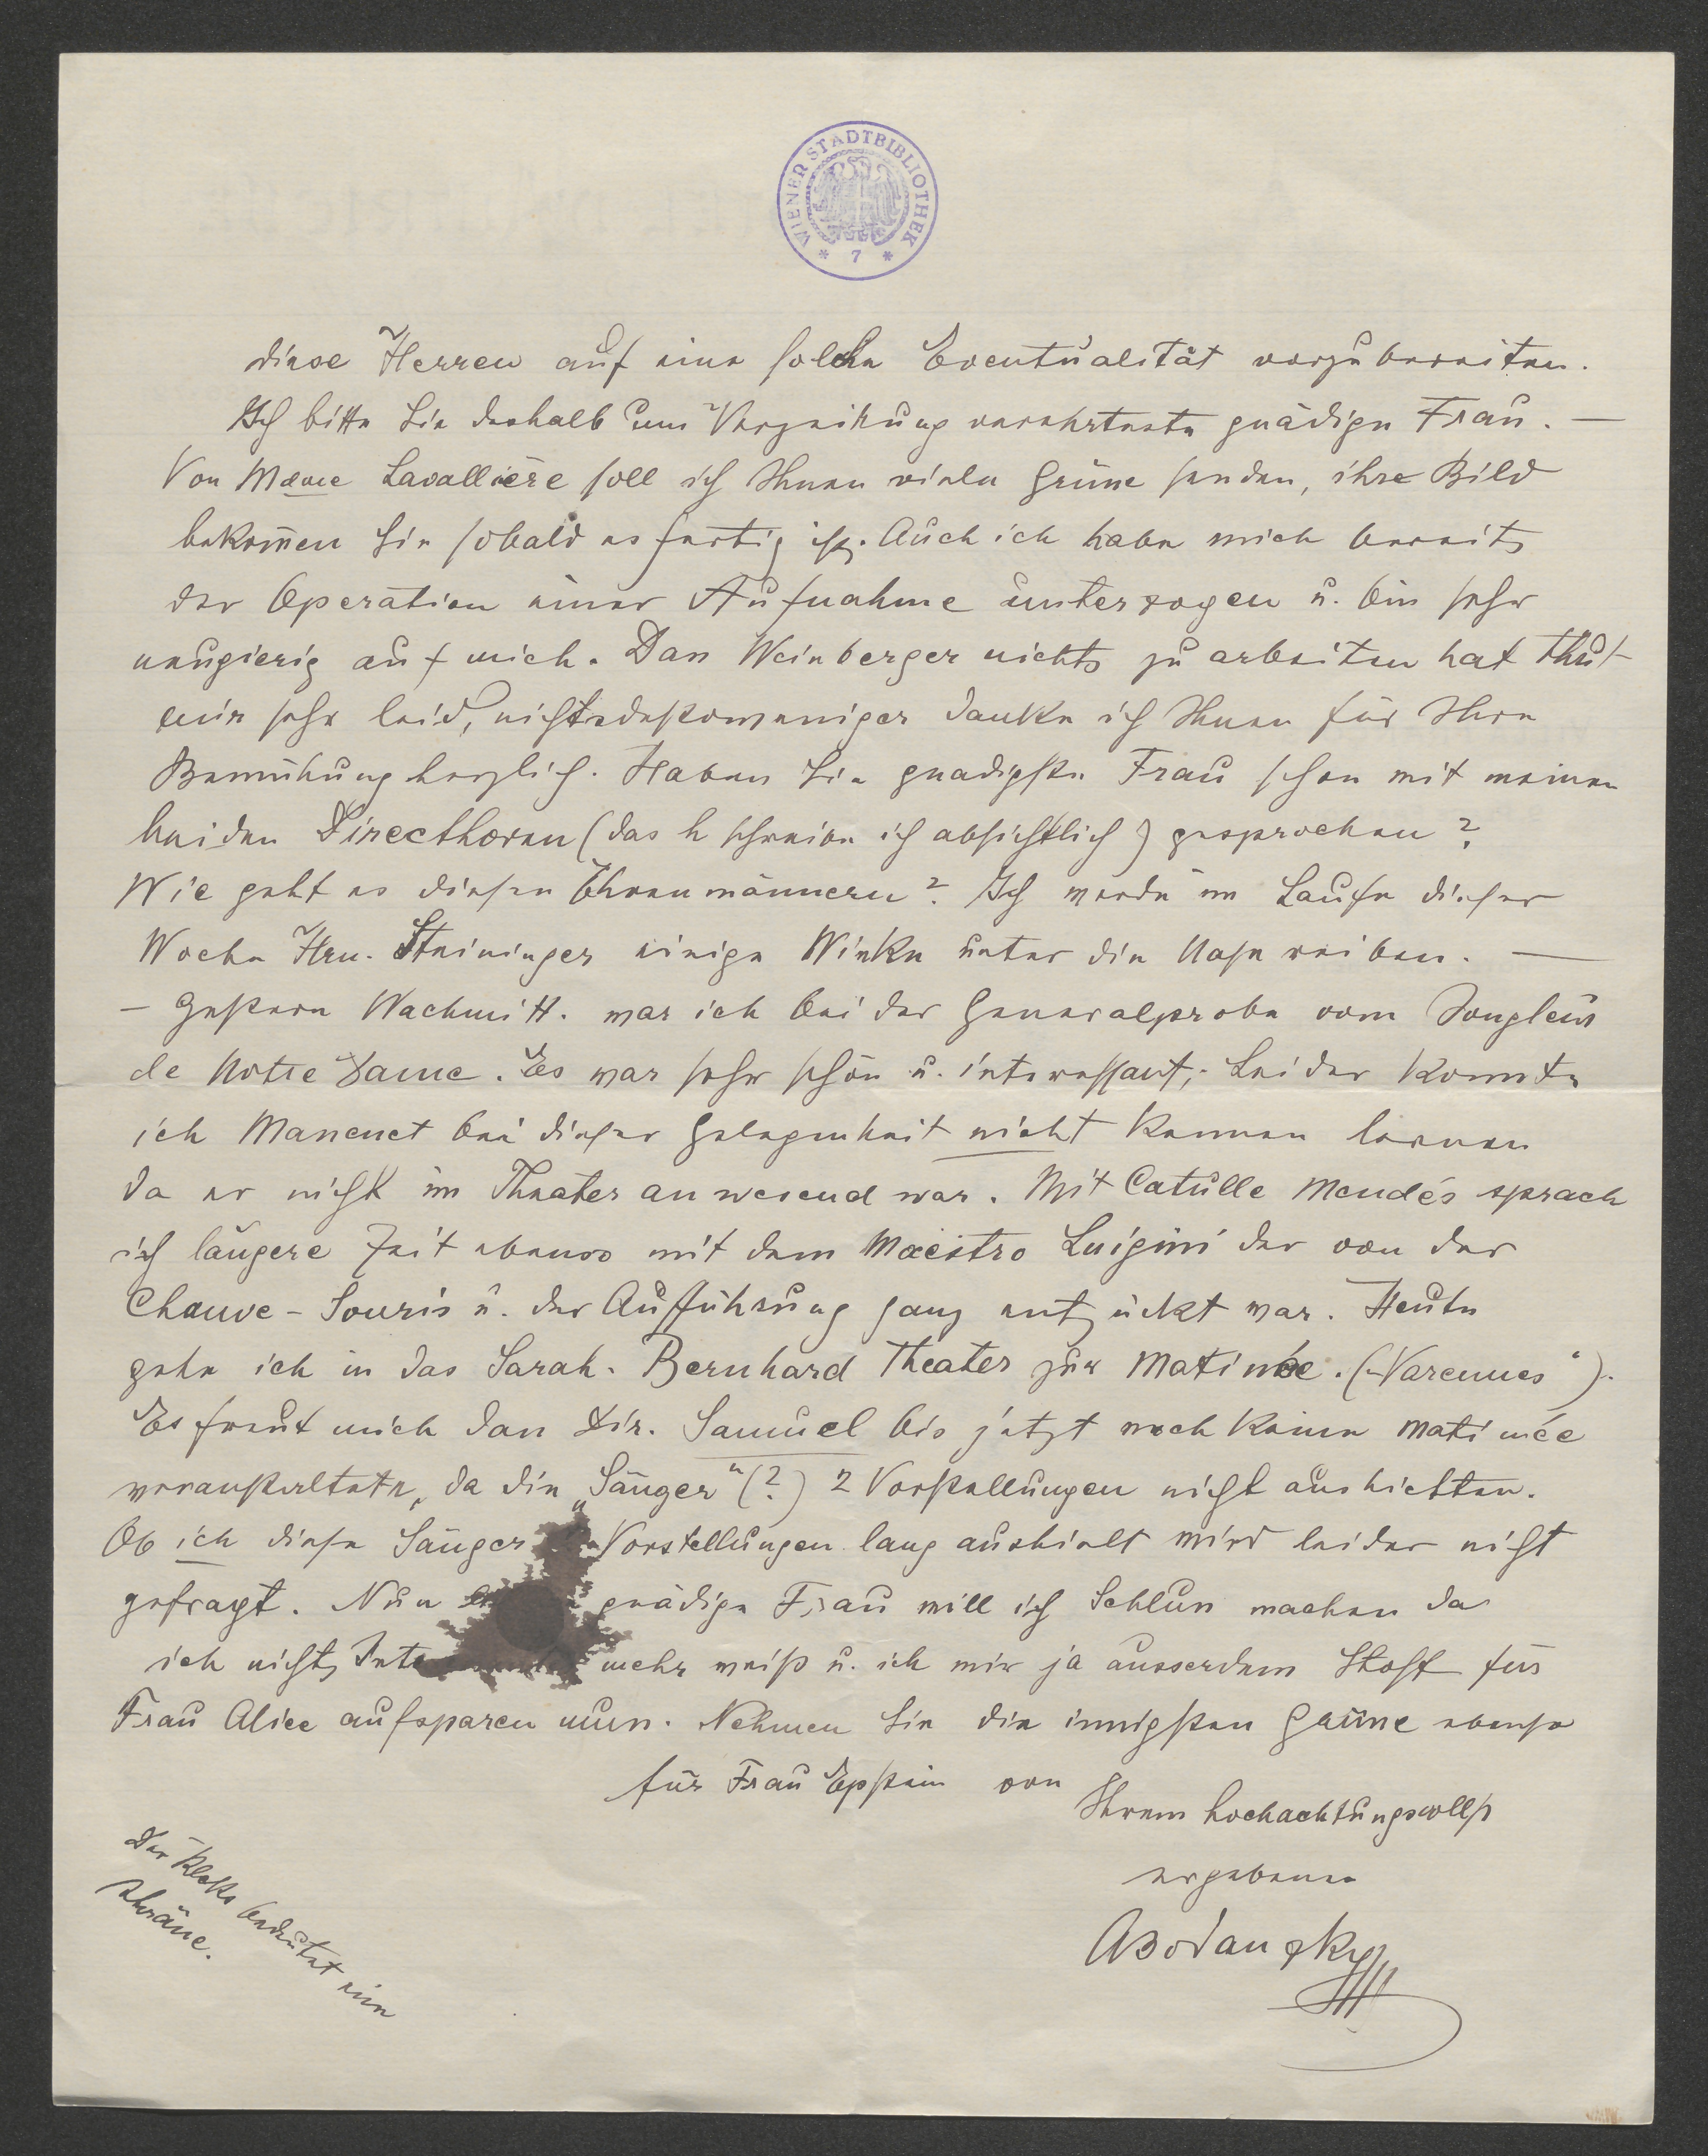 WIENER STADTBIBLIOTHEK
* 7 *
diese Herren auf eine solche Eventualität vorzubereiten.
Ich bitte Sie deshalb um Verzeihung verehrteste gnädige Frau. —
Von Mdme Lavallière soll ich Ihnen viele Grüsse senden, ihre Bild
bekom̅en Sie sobald es fertig ist. Auch ich habe mich bereits
der Operation einer Aufnahme unterzogen u. bin sehr
neugierig auf mich. Dass Weinberger nichts zu arbeiten hat thut
mir sehr leid, nichtsdestoweniger danke ich Ihnen für Ihre
Bemühung herzlich. Haben Sie gnädigste Frau schon mit meinen
beiden Directhoren (das h schreibe ich absichtlich) gesprochen?
Wie geht es diesen Ehrenmännern? Ich werde im Laufe dieser
Woche Hrn. Steininger einige Winke unter die Nase reiben. —
— Gestern Nachmitt. war ich bei der Generalprobe vom Jongleur
de Notre Dame. Es war sehr schön u. interessant; Leider konnte
ich Massenet bei dieser Gelegenheit nicht kennen lernen
da er nicht im Theater anwesend war. Mit Catulle Mendés sprach
ich längere Zeit ebenso mit dem Maestro Luigini der von der
Chauve-Souris u. der Aufführung ganz entzückt war. Heute
gehe ich in das Sarah-Bernhard Theater zur Matinée. („Varennes“).
Es freut mich dass Dir. Samuel bis jetzt noch keine Matinée
veranstaltete, da die „Sänger“ (?) 2 Vorstellungen nicht aushielten.
Ob ich diese Sänger Vorstellungen lang aushielt wird leider nicht
gefragt. Nun gnädige Frau will ich Schluss machen da
ich nichts mehr weiß u. ich mir ja ausserdem Stoff für
Frau Alice aufsparen muss. Nehmen Sie die innigsten Grüsse ebenso
für Frau Epstein von
Ihrem hochachtungsvollst
ergebenen
ABodanzky
Der Kleks bedeutet eine
Thräne.